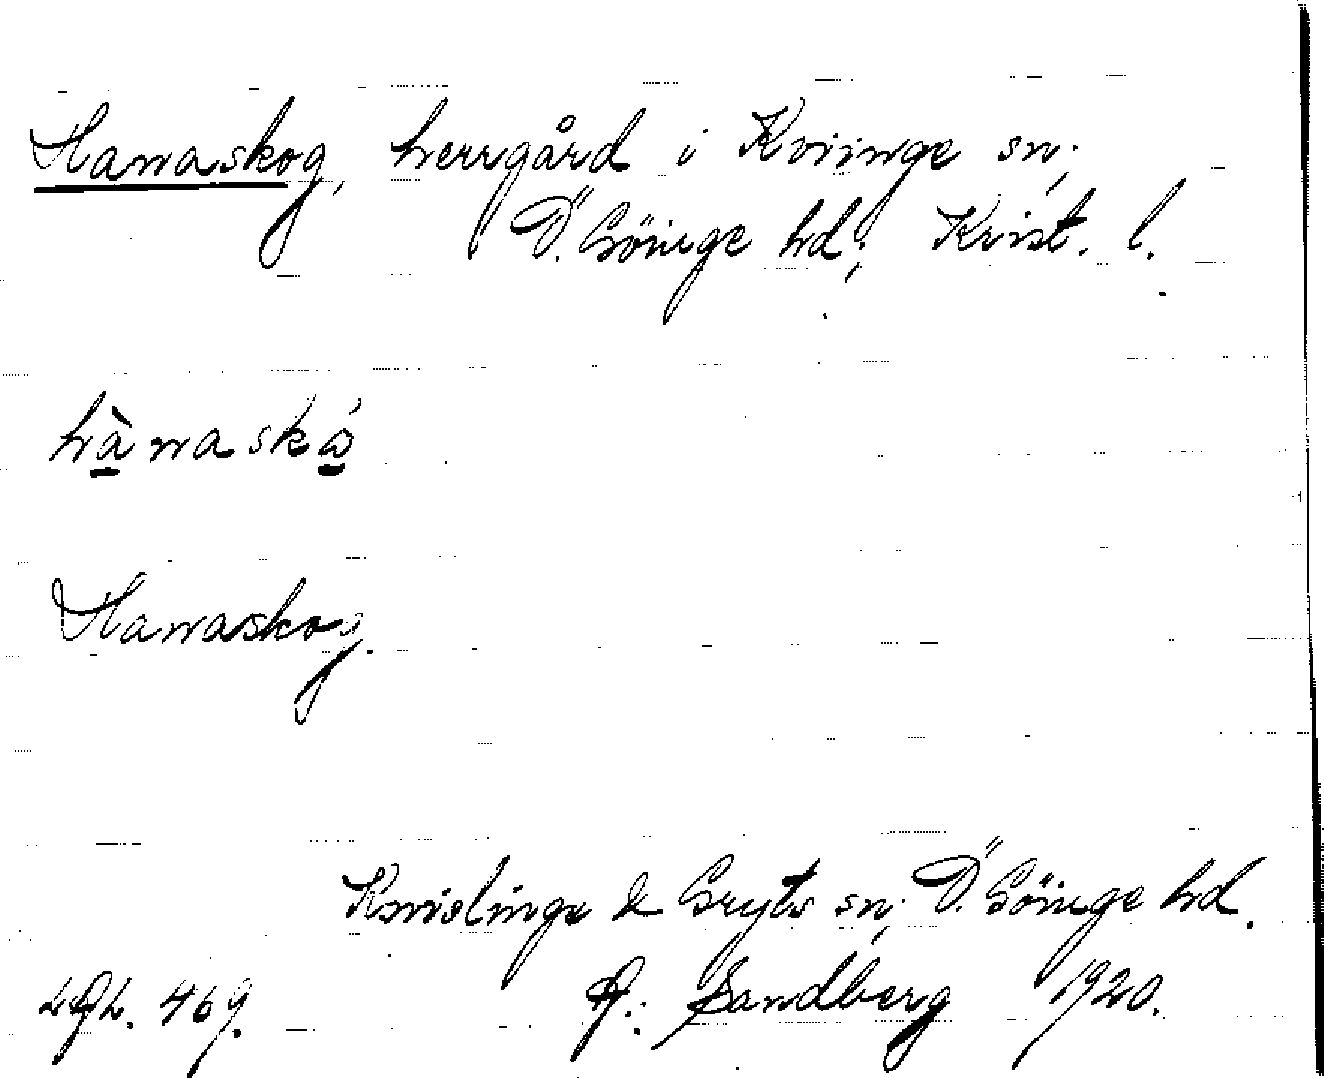 Hanaskog, herrgård i Kviinge sn;
Ö. Göinge hd; Krist. l.
hànaskó
Hanaskog.
Knislinge & Gryts sn; Ö. Göinge hd.
469. Sandberg 1920.